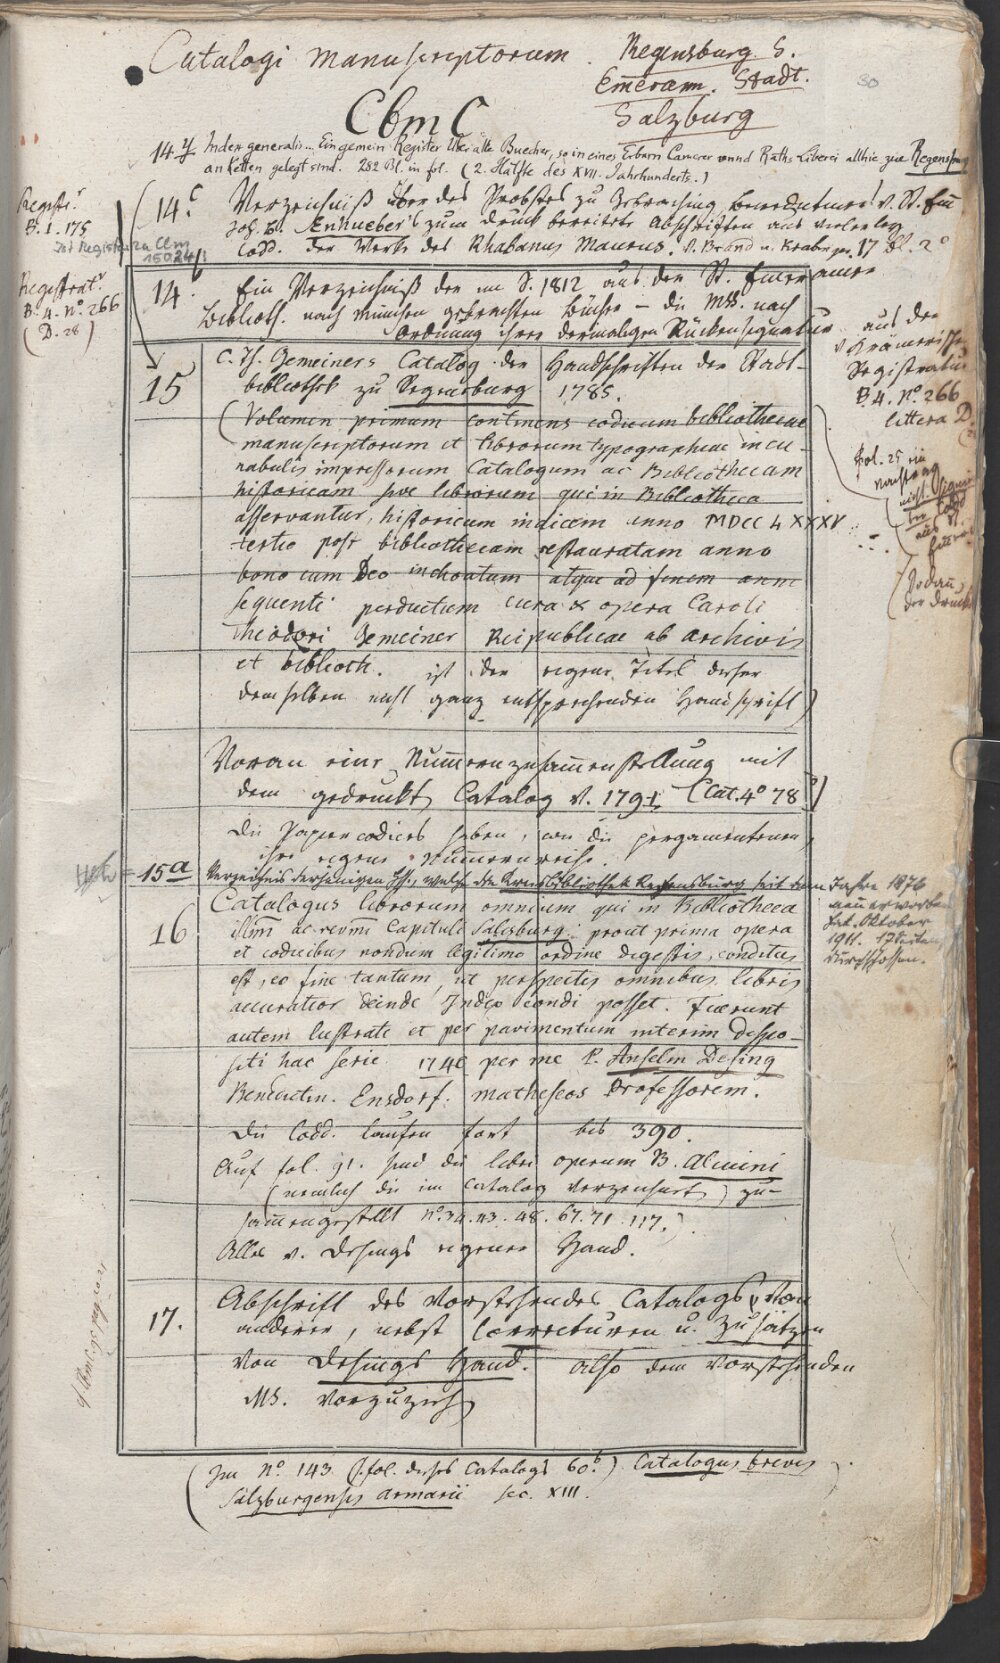 Catalogi manuscriptorum. Regensburg. S.
Em̄eram. Stadt.
Salzburg
30
Cbm C
14 y Index generalis ... Ein gemein Register über alle Buecher, so in eines Erbarn Camerer unnd Raths Liberei allhie zue Regensburg
an Ketten gelegt sind. 282 Bl. in fol. (2. Hälfte des XVII. Jahrhunderts.)
Registr.
B. 1. 175
Registratur Clm
15024
14.c Verzeichniß über des Probstes zu
Joh. B. Enhueber's zum Druck bereitete Abschriften aus vielerley
Codd. der Werke des Rhabanus Maurus. 17 Bl. 2°
Registrat.
B. 4. No. 266
(D. 28)
14.b Ein Verzeichniß der im J. 1812 aus der St. Emeramer
Biblioth. nach München gebrachten Bücher – die Mss. nach
Ordnung ihrer dermaligen Rückensignatur
aus der
Registratur
B. 4. No. 266
littera D.
fol. 25 ein
Nachtrag
15 C. Th. Gemeiners Catalog der Handschriften der Stadt-
bibliothek zu Regensburg 1785.
(Volumen primum continens codicum bibliothecae
manuscriptorum et librorum typographiae incu-
nabulis impressorum Catalogum ac Bibliothecam
historicam sive librorum qui in Bibliotheca
asservantur, historicum indicem anno MDCCLXXXV
tertio post bibliothecam restauratam anno
bono cum Deo inchoatum atque ad finem anni
sequenti perductum cura & opera Caroli
Theodori Gemeiner Reipublicae ab archivis
et biblioth. ist der eigene Titel dieser
demselben nicht ganz entsprechenden Handschrift)
Voran eine Num̄ernzusam̄enstellung mit
dem gedruckten Catalog v. 1791. (Cat. 4° 78)
Die Papiercodices haben, wie die pergamentenen,
ihre eigene Num̄ernreihe.
15a Verzeichnis derjenigen Hss., welche die Kreisbibliothek Regensburg seit dem Jahre 1876
neu erworben
hat. Oktober
1911. 17 Seiten
durchschossen.
16 Catalogus librorum omnium qui in Bibliotheca
illm̄i ac revm̄i Capituli Salisburg: prout prima opera
et codicibus nondum legitimo ordine digestis, conditus
est, eo fine tantum, ut perspectis omnibus libris
accuratior deinde Index condi posset. Fuerunt
autem lustrati et per pavimentum interim depo-
siti hac serie 1746 per me P. Anselm Desing
Benedictin. Ensdorf. matheseos Professorem.
Die Codd. laufen fort bis 390.
Auf fol. 91. sind die libri operum B. Alcuini
(nemlich die im Catalog verzeichneten) zu-
sam̄engestellt No. 34. 43. 48. 67. 71. 117.)
Alles v. Desings eigener Hand.
17. Abschrift des vorstehenden Catalogs von
anderer, nebst Correcturen u. Zusätzen
von Desings Hand. Also dem vorstehenden
MS. vorzuziehen
(Im No. 143 (s. fol. dieses Catalogs 60.b) Catalogus brevis
Salzburgensis armarii sec. XIII.)